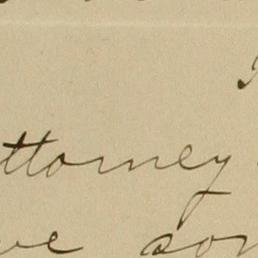 ttorney
ve son